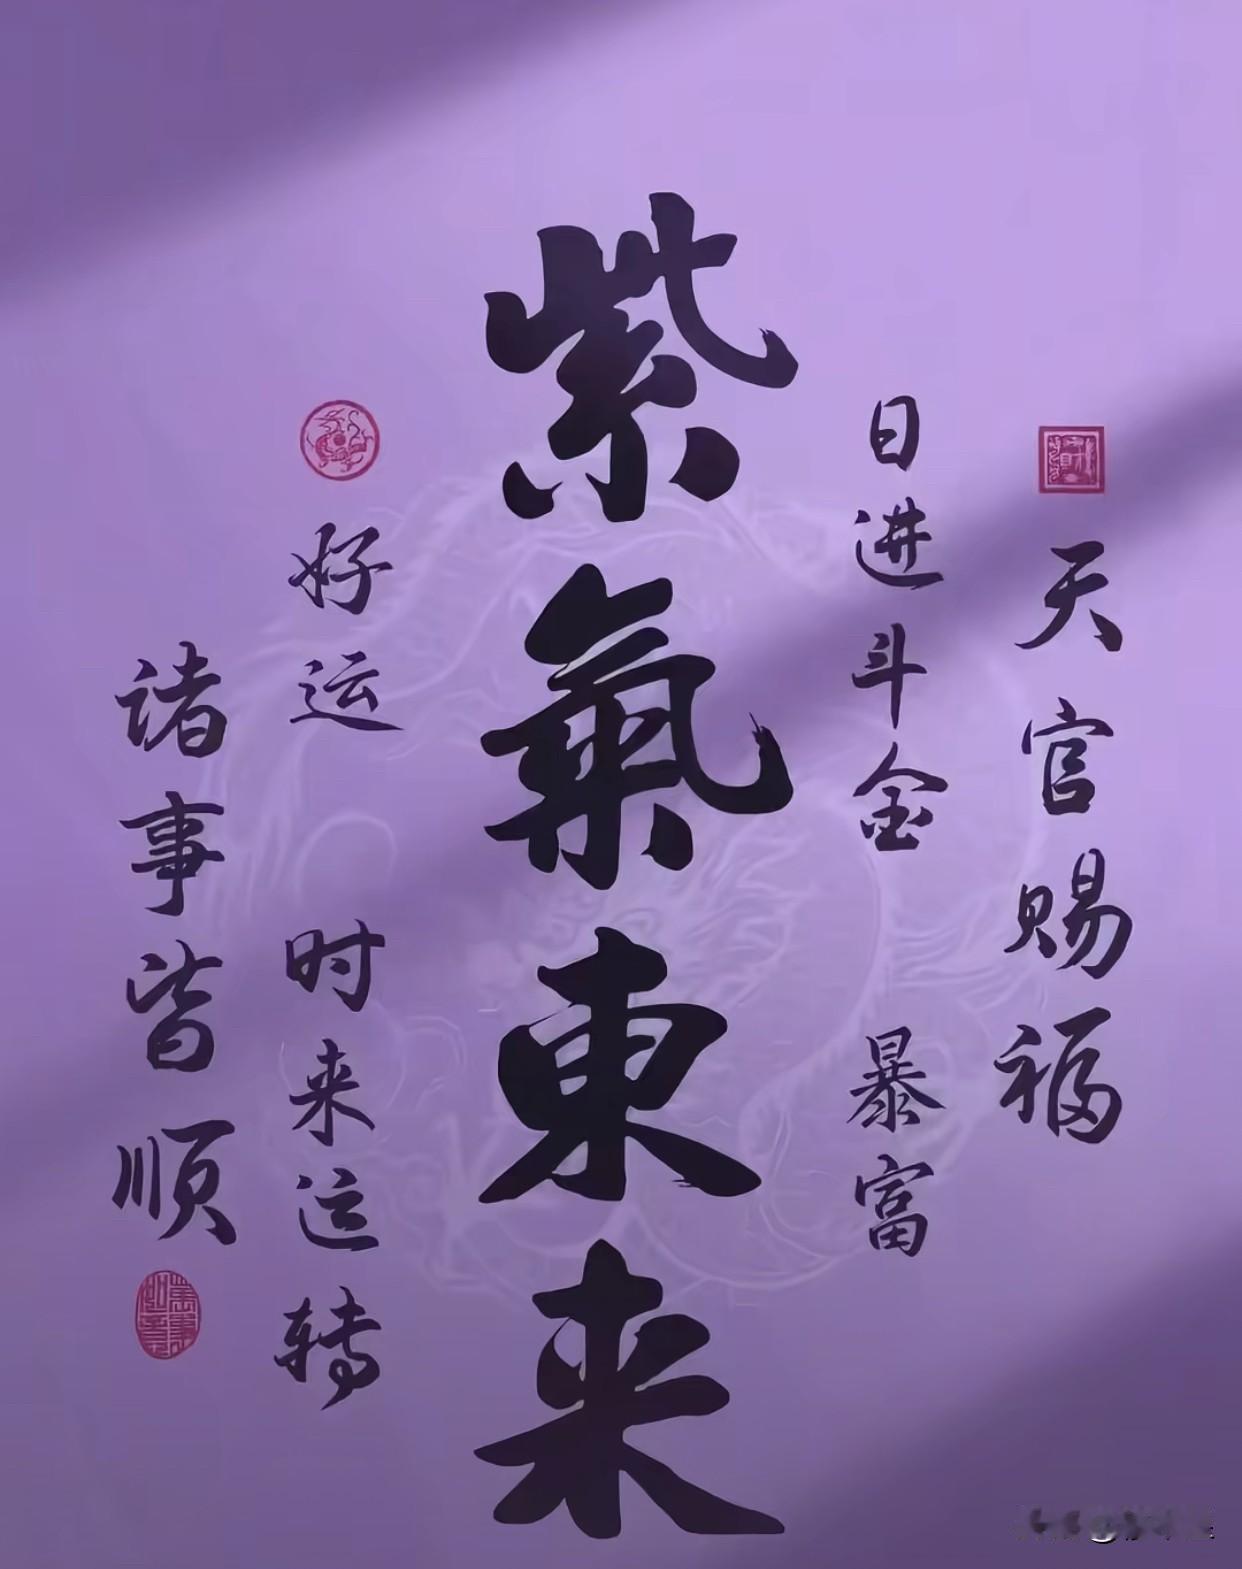 天官赐福
日进斗金 暴富
紫氣東来
好运 时来运转
诸事皆顺
萬事如意